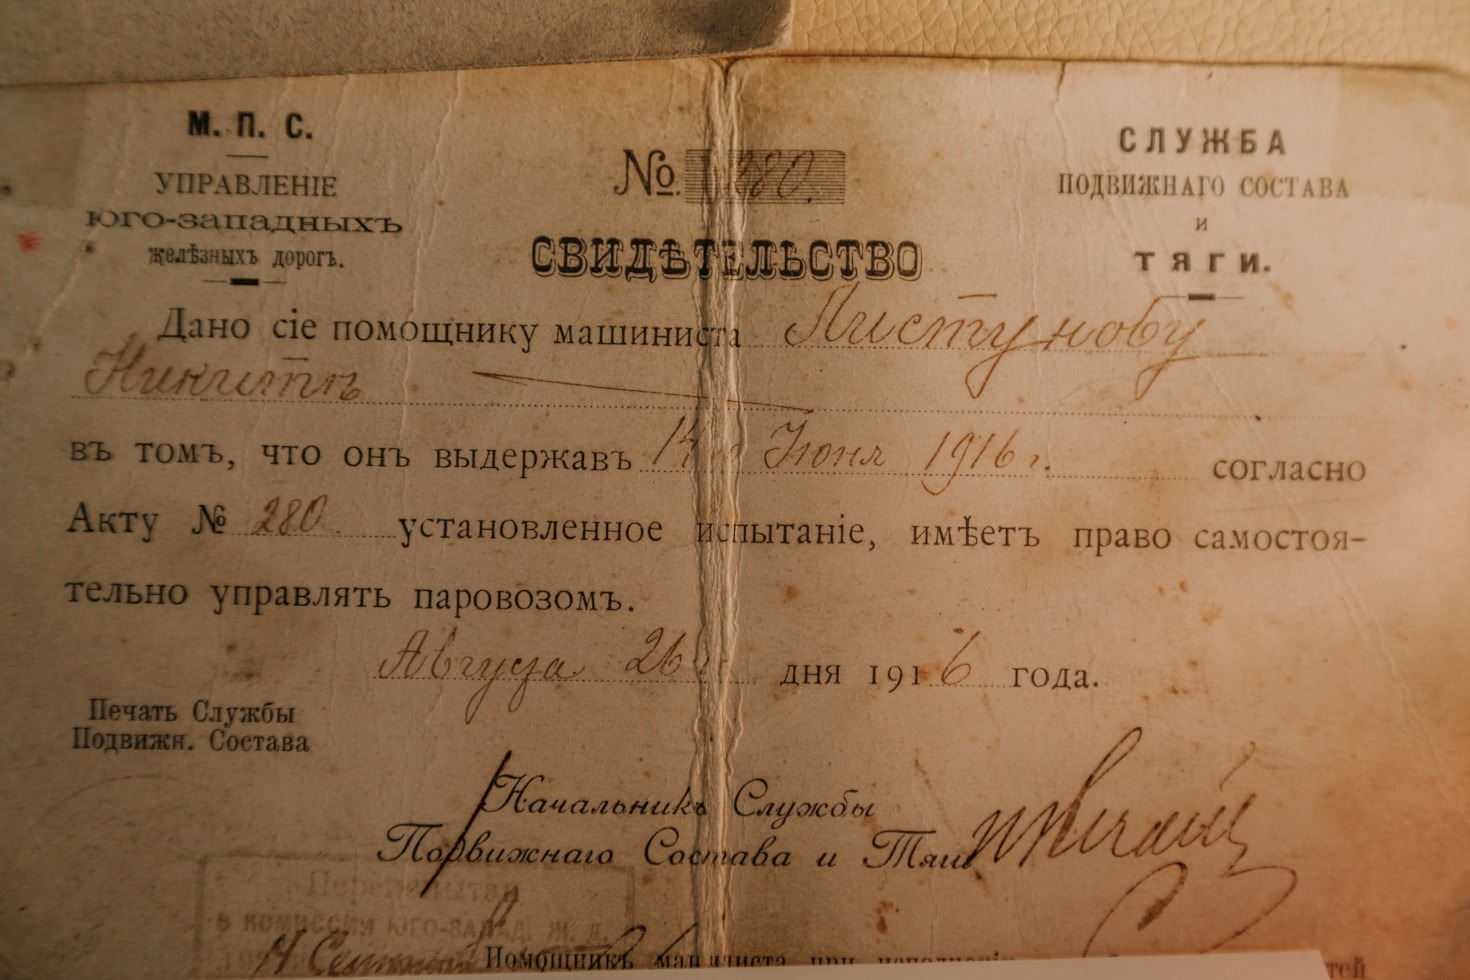 М. П. С.
УПРАВЛЕНІЕ
ЮГО-ЗАПАДНЫХЪ
желѣзныхъ дорогъ.
№ 280.
СВИДѢТЕЛЬСТВО
СЛУЖБА
ПОДВИЖНАГО СОСТАВА
и
ТЯГИ.
Дано сіе помощнику машиниста Листунову
Никитѣ
въ томъ, что онъ выдержавъ 14го Іюня 1916 г. согласно
Акту № 280. установленное испытаніе, имѣетъ право самостоя-
тельно управлять паровозомъ.
Августа 26 дня 1916 года.
Печать Службы
Подвижн. Состава
Начальникъ Службы
Подвижнаго Состава и Тяги
в комиссии Юго-Запад. ж. д.
Помощникъ машиниста при